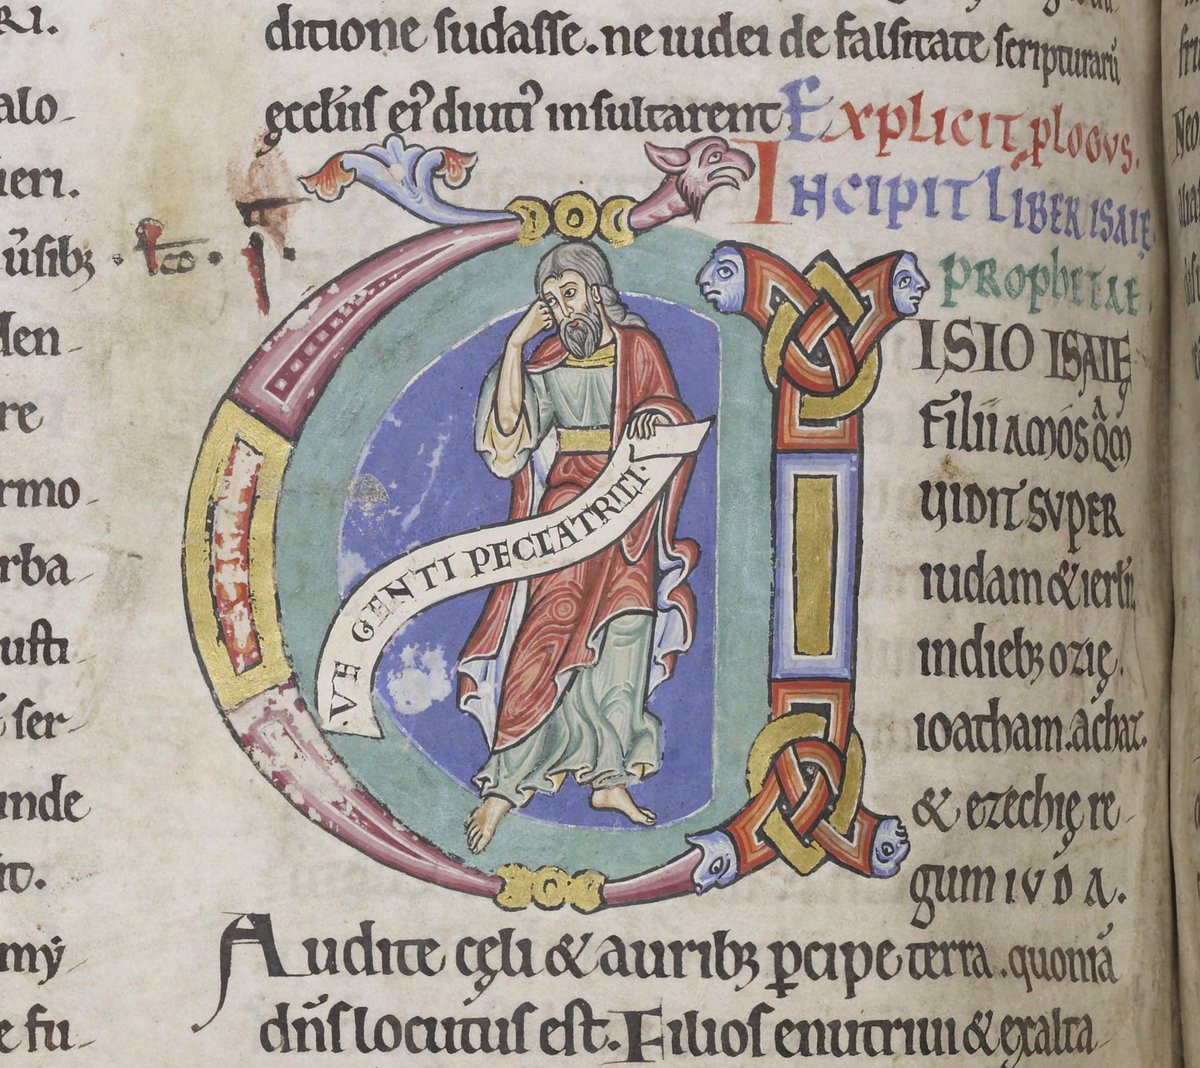 RI.
alo-
ieri.
űsibȝ
den-
re
rmo-
rba-
usti-
ser-
unde
it.
mÿ-
e fu-
ditione sudasse. ne iudei de falsitate scripturarū
eccl̄iis ei᷒ diuti᷒ insultarent Explicit ꝓlogus.
Incipit liber isaię
prophetae
ISIO ISAIĘ
filii amos q̄m
uidit super
iudam & ierl̄m.
indiebȝ ozię.
ioatham. achaz.
& ezechię re-
gum IVDA.
VE GENTI PECCATRICI.
Audite cęli & auribȝ ꝑcipe terra. quoniā
dn̄s locutus est. Filios enutriui & exalta-